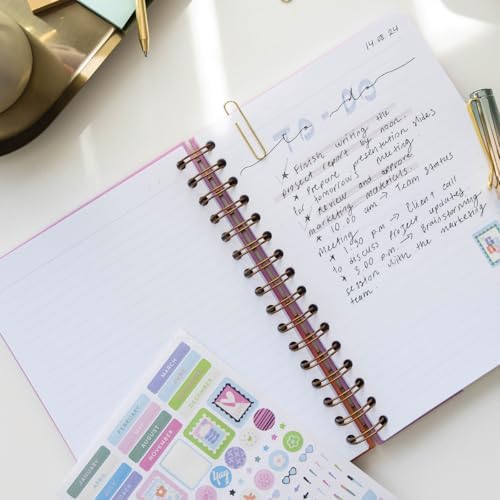 14.08.24
TO-DO
to-do
* Finish writing the
project report by noon.
* Prepare presentation slides
for tomorrow's meeting.
* Review and approve
marketing materials.
* 10.00 am → Team status
Meeting
* 1:30 p.m → Client call
to discuss project updates
* 3.00 p.m. → Brainstorming
session with the marketing
team.
MARCH
FEBRUARY
JANUARY
AUGUST
NOVEMBER
DECEMBER
Yay